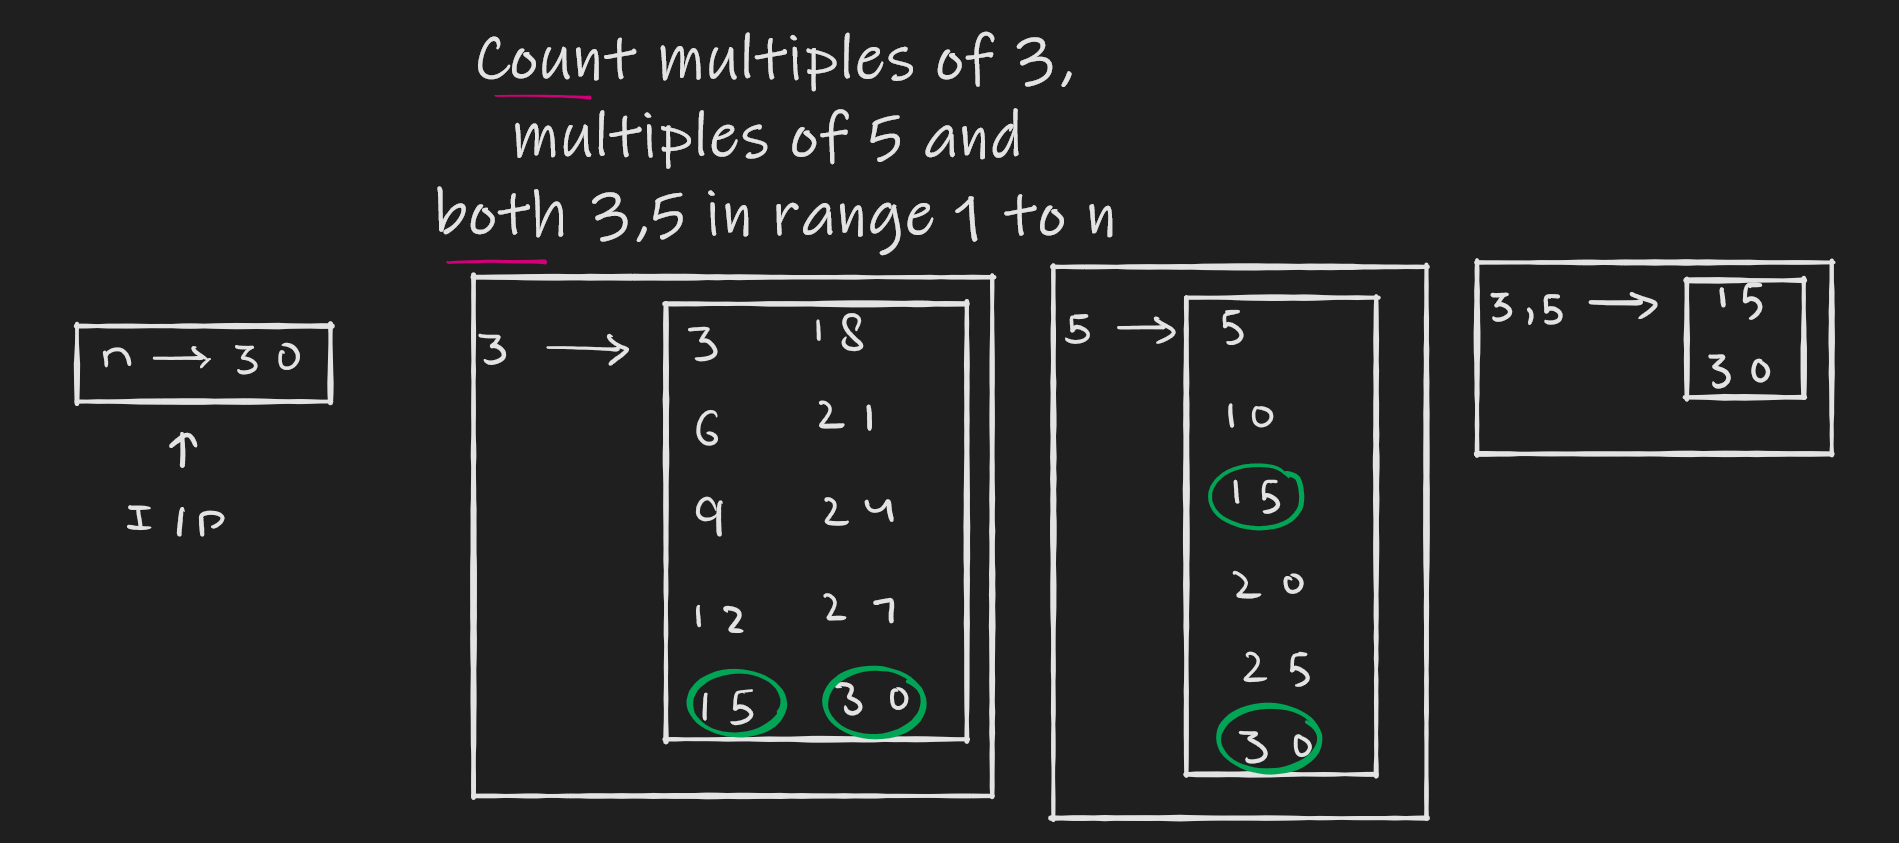 Count multiples of 3,
multiples of 5 and
both 3,5 in range 1 to n
n → 30
↑
I/P
3 → 3 18
6 21
9 24
12 27
15 30
5 → 5
10
15
20
25
30
3,5 → 15
30